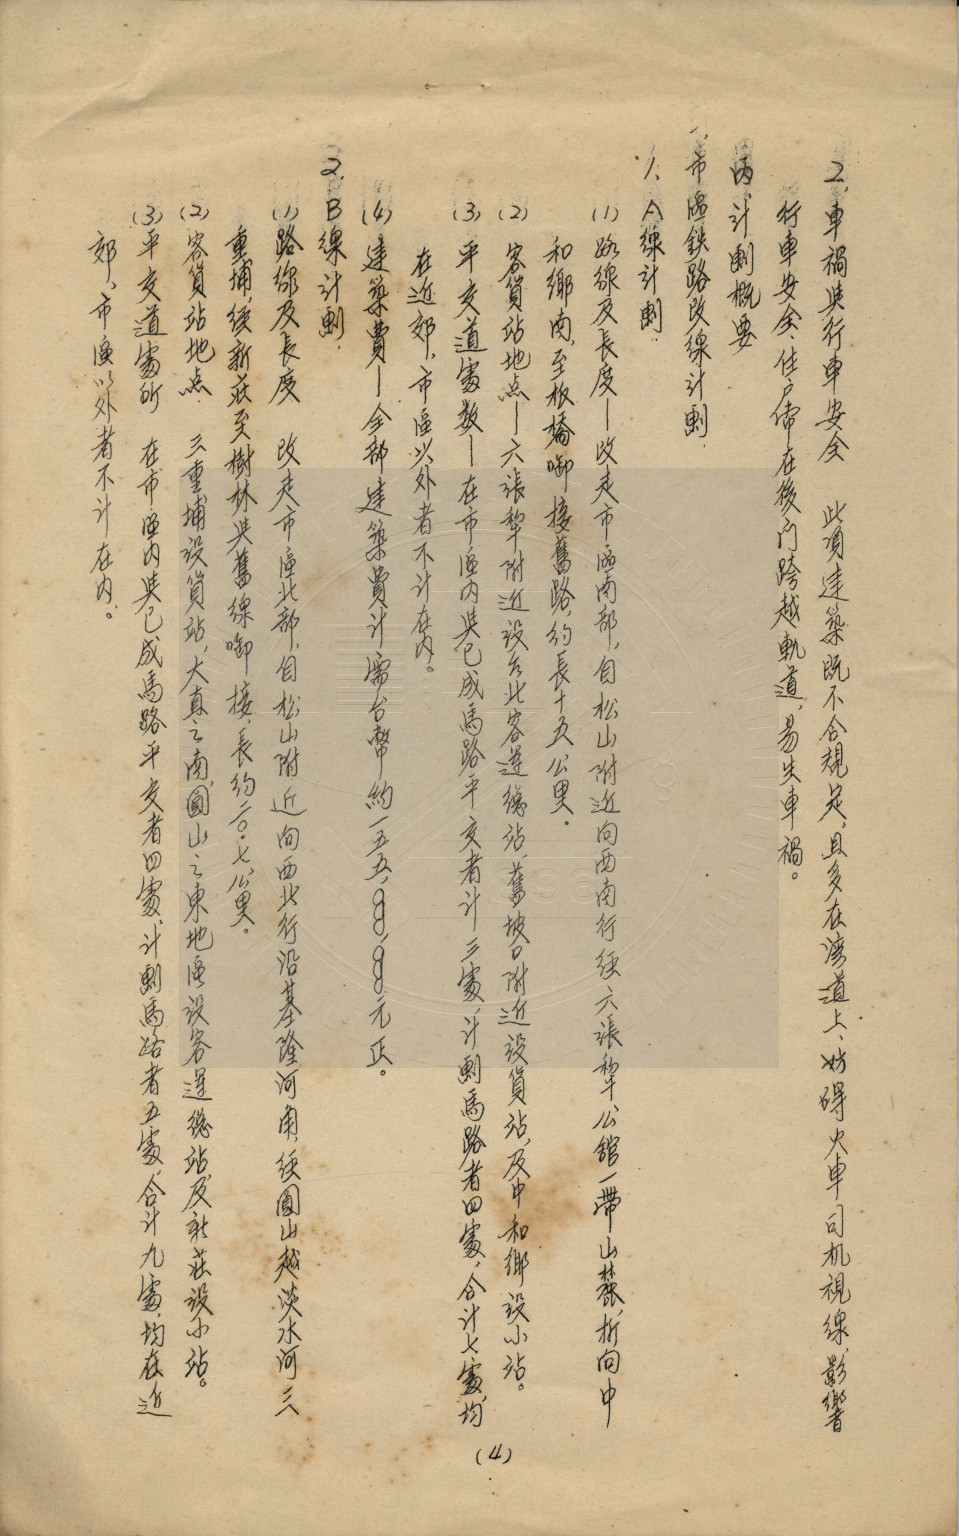 2、車禍與行車安全　此項建築既不合規定，且多在灣道上、妨碍火車司机視線，影響
行車安全、住戶常在後門跨越軌道，易失車禍。
丙、計劃概要
一、市區鉄路改線計劃
1、A線計劃
(1) 路線及長度—改走市區南部，自松山附近向西南行經六張犂公館一帶山麓，折向中
和鄉南，至板橋啣接舊路，約長十五公里。
(2) 客貨站地点—六張犂附近設台北客運總站，舊坡口附近設貨站，及中和鄉設小站。
(3) 平交道處数—在市區內與已成馬路平交者計三處，計劃馬路者四處，合計七處，均
在近郊，市區以外者不計在內。
(4) 建築費—全部建築費計需台幣約一五五，
元正。
2、B線計劃
(1) 路線及長度　改走市區北部，自松山附近向西北行沿基隆河南，經圓山越淡水河三
重埔，經新莊至樹林與舊線啣接，長約二〇·七公里。
(2) 客貨站地点　三重埔設貨站，大直之南，圓山之東地區設客運總站，及新莊設小站。
(3) 平交道處所　在市區內與已成馬路平交者四處，計劃馬路者五處，合計九處，均在近
郊，市區以外者不計在內。
(4)